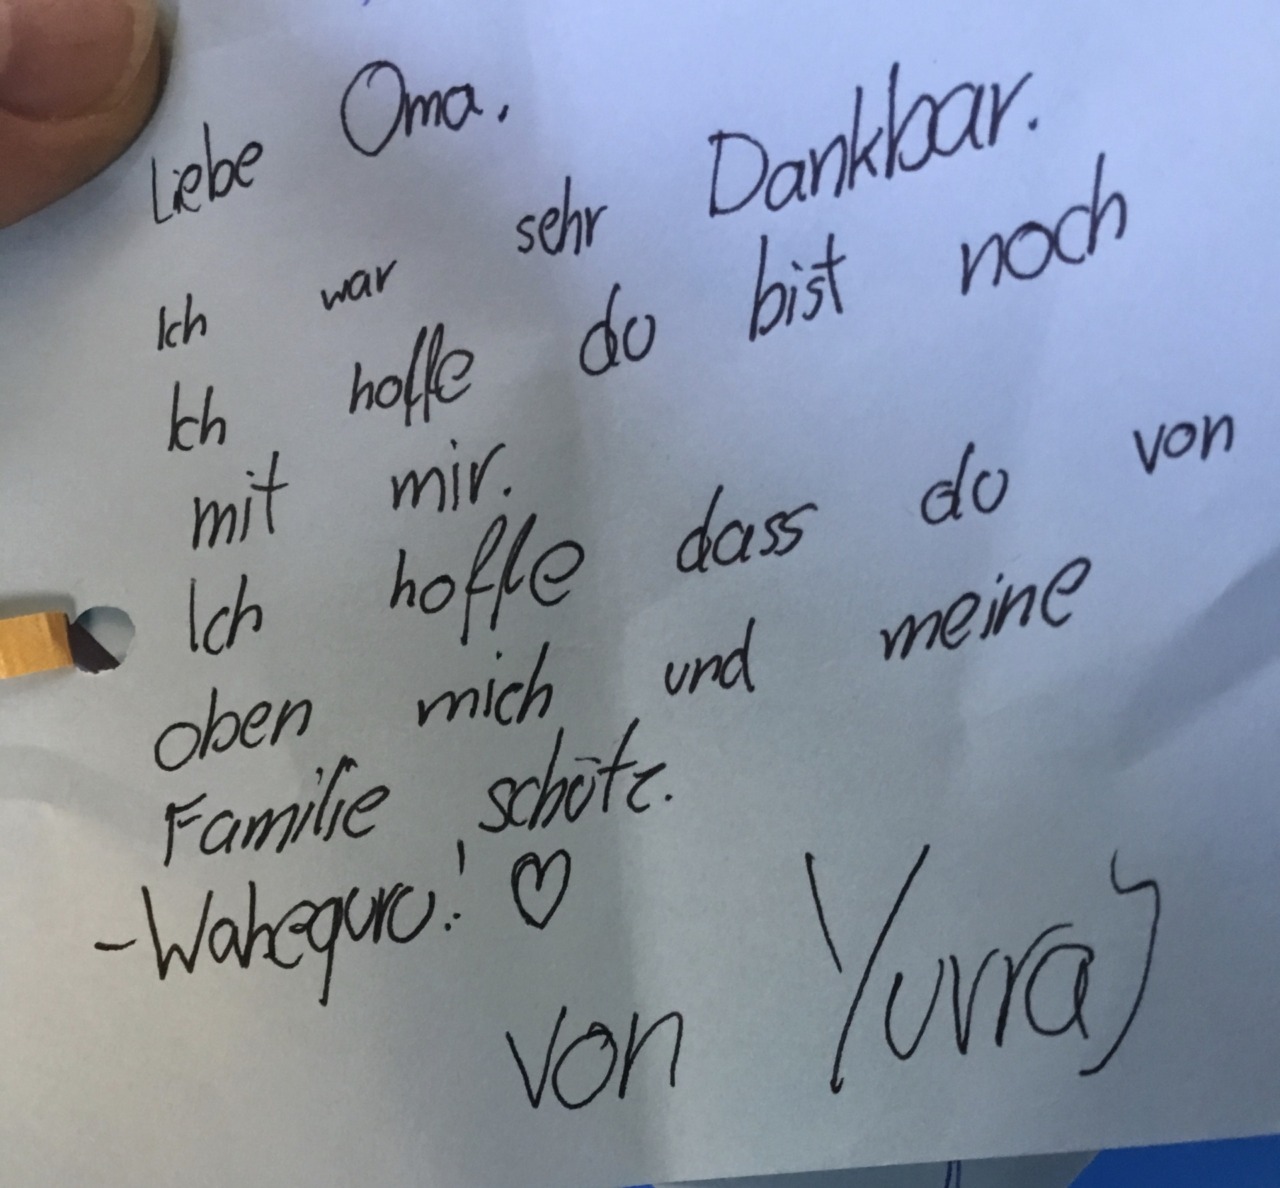 Liebe Oma,
Ich war sehr Dankbar.
Ich hoffe du bist noch
mit mir.
Ich hoffe dass du von
oben mich und meine
Familie schütz.
-Waheguru! ♡
von Yuvraj